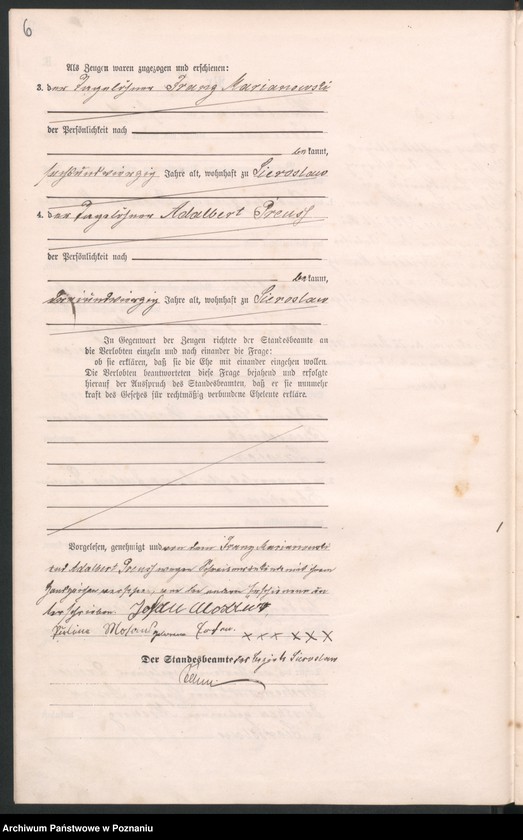 6
Als Zeugen waren zugezogen und erschienen:
3. der Tagelöhner Franz Marianowski
der Persönlichkeit nach
bekannt,
sechsundvierzig Jahre alt, wohnhaft zu Sieroslaw
4. der Tagelöhner Adalbert Preuss
der Persönlichkeit nach
bekannt,
Jahre alt, wohnhaft zu Sieroslaw
In Gegenwart der Zeugen richtete der Standesbeamte an
die Verlobten einzeln und nach einander die Frage:
ob sie erklären, daß sie die Ehe mit einander eingehen wollen.
Die Verlobten beantworteten diese Frage bejahend und erfolgte
hierauf der Ausspruch des Standesbeamten, daß er sie nunmehr
kraft des Gesetzes für rechtmäßig verbundene Eheleute erkläre.
Vorgelesen, genehmigt und von dem Franz Marianowski
und Adalbert Preuss wegen Schreibensunkunde mit ihrem
Handzeichen versehen, von den anderen Erschienenen un
terschrieben.
geborene xxx xxx
Der Standesbeamte des Bezirks Sieroslaw
Archiwum Państwowe w Poznaniu